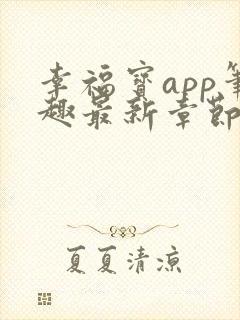 幸福宝app笔
趣最新章节
夏夏清凉